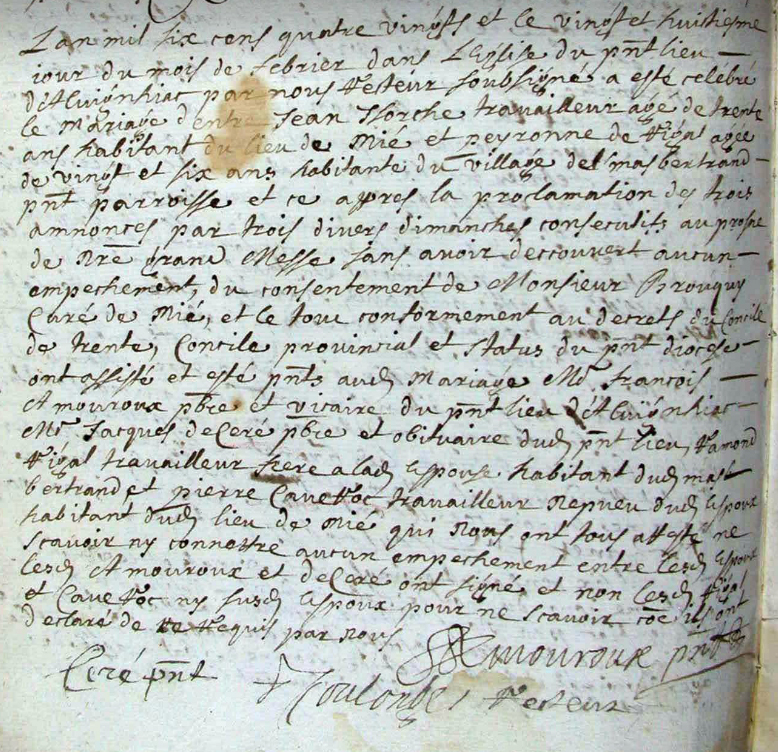 Lan mil six cens quatre vingts et le vingt et huitiesme
iour du mois de febrier dans Leglise du pnt lieu
d'Alvignhac par nous Recteur soubsigné a esté celebré
le Mariage d'entre Jean Lorche travailleur agé de trente
ans habitant du lieu de Mié et peyronne de Vigal agee
de vingt et six ans habitante du village del mas bertrand
pnt parroisse et ce appres la proclamation des trois
annonces par trois divers dimanches consecutifs au prosne
de Nre grand Messe sans avoir descouvert aucun
empechement, du consentement de Monsieur Brouquy
Curé de Mié, et le tout conformement au decrets du Concile
de trente, Concile provincial et status du pnt diocese
ont assisté et esté pnts aud Mariage Mr. francois
Amouroux pbre et vicaire du pnt lieu d'Alvignhac
Mr. Jacques de Ceré pbre et obituaire dud pnt lieu, Ramond
Vigal travailleur frere a lad espouse habitant dud mas
bertrand et pierre Cavarroc travailleur Nepveu dud espoux
habitant dud lieu de Mié qui Nous ont tous attesté ne
scavoir ny connottre aucun empechement entre lesd espoux
lesd Amouroux et de Ceré ont signé et non lesd Vigal
et Cavarroc ny susd espoux pour ne scavoir coe ils ont
declaré de ce Requis par Nous
Amouroux pnt
Ceré pnt
Coulonges Recteur